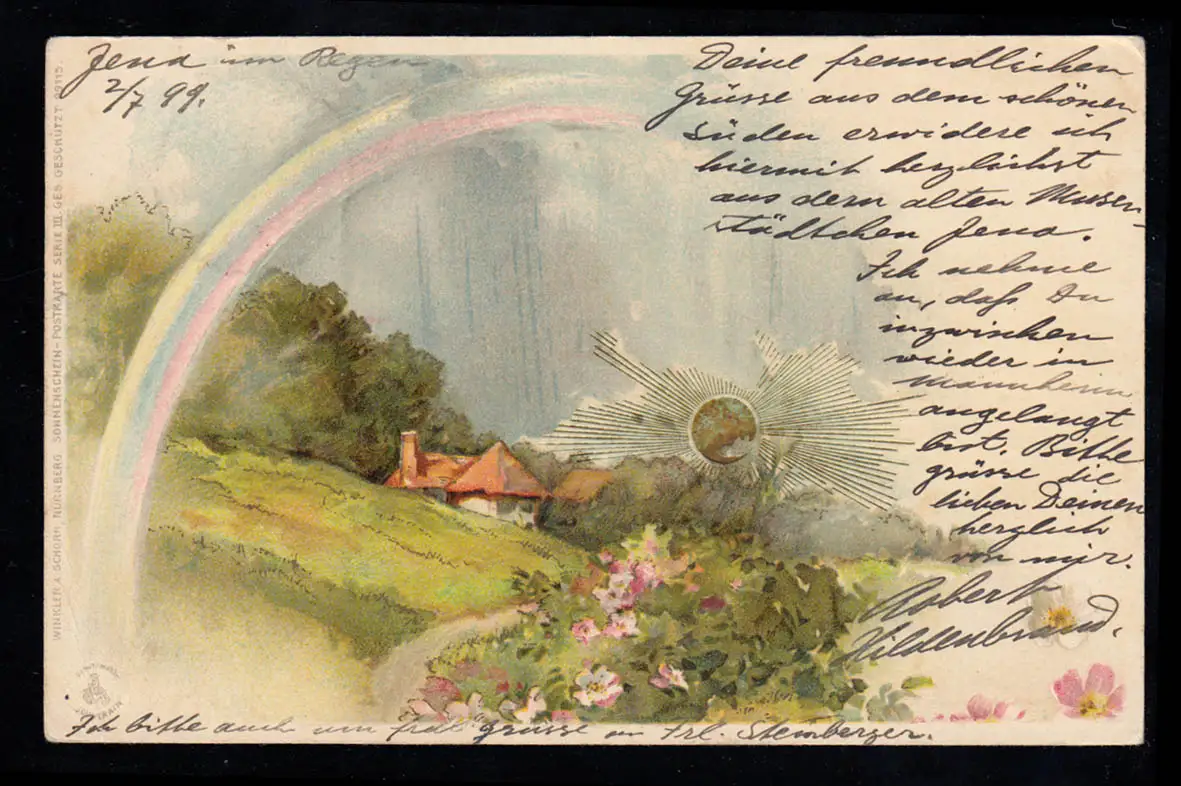 Jena im Regen
2/7 99.
Deine freundlichen
Grüsse aus dem schönen
Süden erwidere ich
hiermit herzlichst
aus dem alten Musen-
städtchen Jena.
Ich nehme
an, daß Du
inzwischen
wieder in
Mannheim
angelangt
bist. Bitte
grüsse die
lieben Deinen
herzlich
von mir.
Robert
Hildenbrand.
Ich bitte auch um frdl. Grüsse an Frl. Stemberger.
WINKLER & SCHORN, NÜRNBERG. SONNENSCHEIN-POSTKARTE SERIE III. GES. GESCHÜTZT